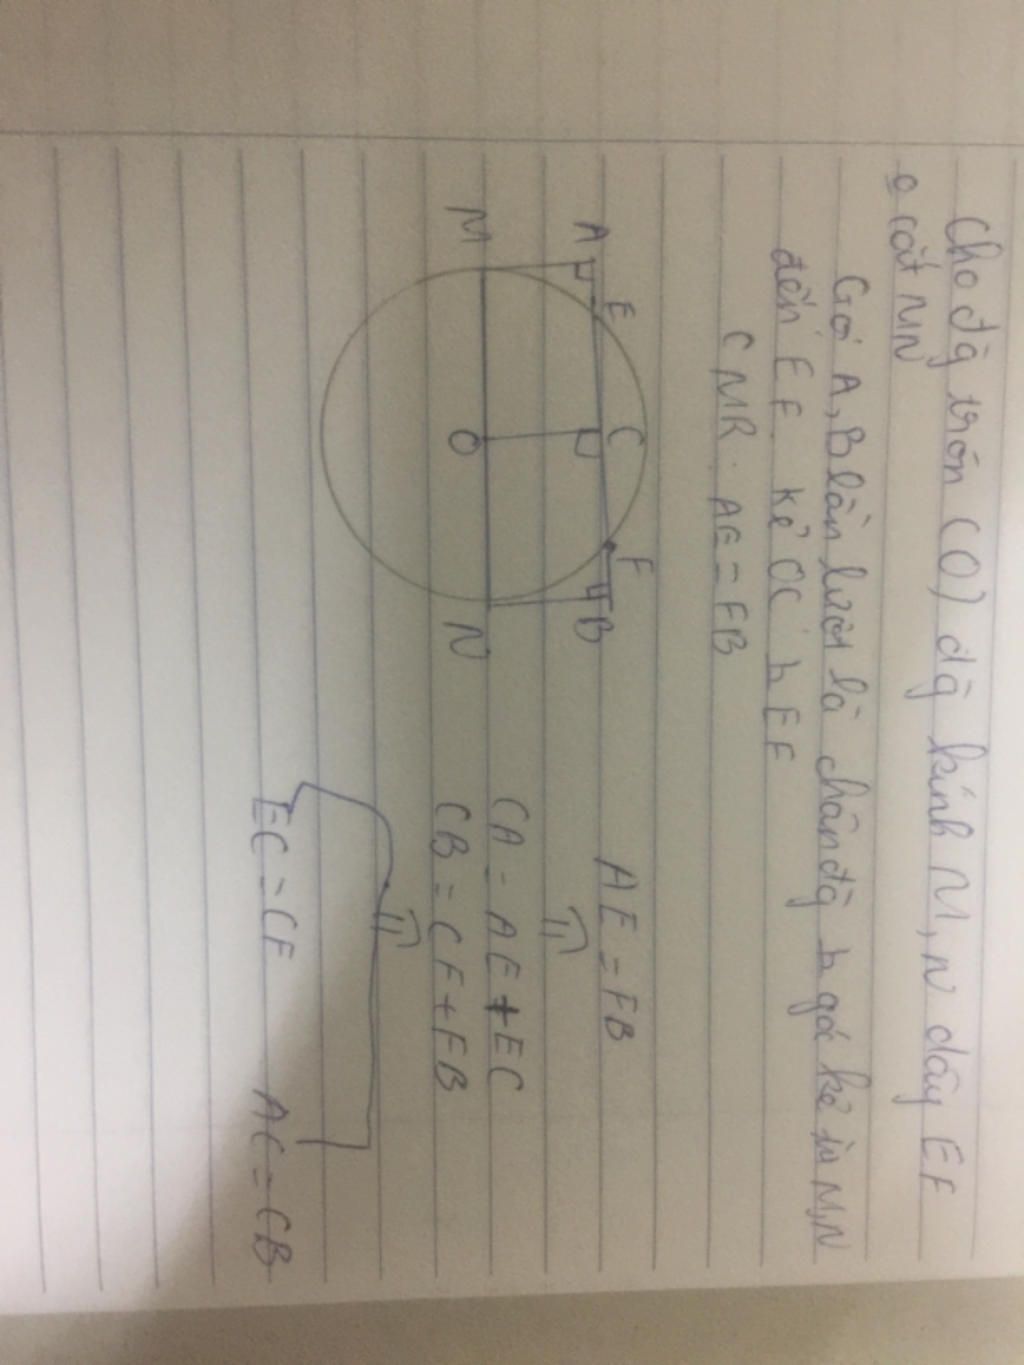 Cho đg tròn (O) đg kính M,N dây EF
o cắt MN
Gọi A,B lần lượt là chân đg ⊥ góc kẻ từ M,N
đến EF. Kẻ OC ⊥ EF
CMR. AE=FB
A
E
C
F
B
M
O
N
AE=FB
⇑
CA=AE+EC
CB=CF+FB
⇑
EC=CF AC=CB